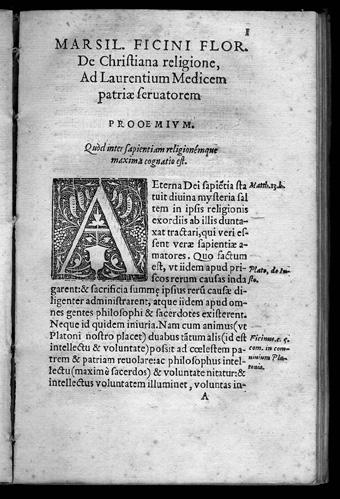 1
MARSIL. FICINI FLOR.
De Chriſtiana religione,
Ad Laurentium Medicem
patriæ ſeruatorem
PROOEMIVM.
Quòd inter ſapientiam religionémque
maxima cognatio eſt.
AEterna Dei ſapiẽtia ſta
tuit diuina myſteria ſal
tem in ipſis religionis
exordiis ab illis dunta-
xat tractari, qui veri eſ-
ſent veræ ſapientiæ a-
matores. Quo factum
eſt, vt iidem apud pri-
ſcos rerum cauſas inda
garent: & ſacrificia ſummę ipſius rerũ cauſæ di-
ligenter adminiſtrarent, atque iidem apud om-
nes gentes philoſophi & ſacerdotes exiſterent.
Neque id quidem iniuria. Nam cum animus (vt
Platoni noſtro placet) duabus tãtum alis (id eſt
intellectu & voluntate) poſsit ad cœleſtem pa-
trem & patriam reuolare: ac philoſophus intel-
lectu (maximè ſacerdos) & voluntate nitatur: &
intellectus voluntatem illuminet, voluntas in-
A
Matth.13.b.
Plato, de
Ficinus
com. in con-
uiuium Pla-
tonis.